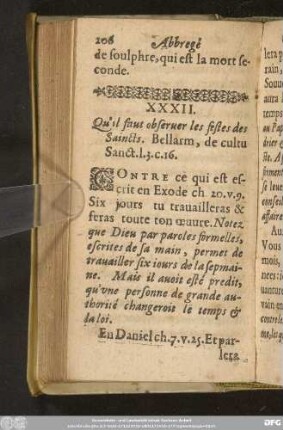 208 Abbregé
de soulphre, qui est la mort se-
conde.
XXXII.
Qu'il faut observer les festes des
Saincts. Bellarm, de cultu
Sanct.l.3.c.16.
CONTRE ce qui est es-
crit en Exode ch. 20.v.9.
Six jours tu travailleras &
feras toute ton œuvre. Notez
que Dieu par paroles formelles,
escrites de sa main, permet de
travailler six iours de la sepmai-
ne. Mais il avoit esté predit,
qu'vne personne de grande au-
thorité changeroit le temps &
la loi.
En Daniel ch.7.v.25. Et par-
lera